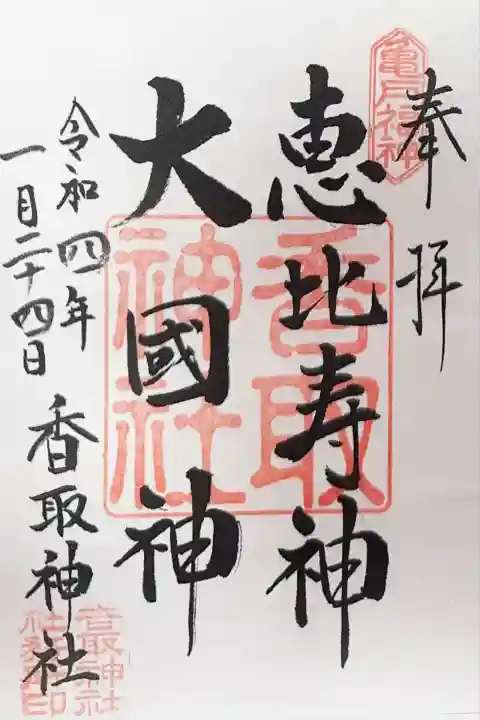 奉拝
亀戸福神
恵比寿神
大國神
香取
神社
令和四年
一月二十四日
香取神社
香取神社
社務所印